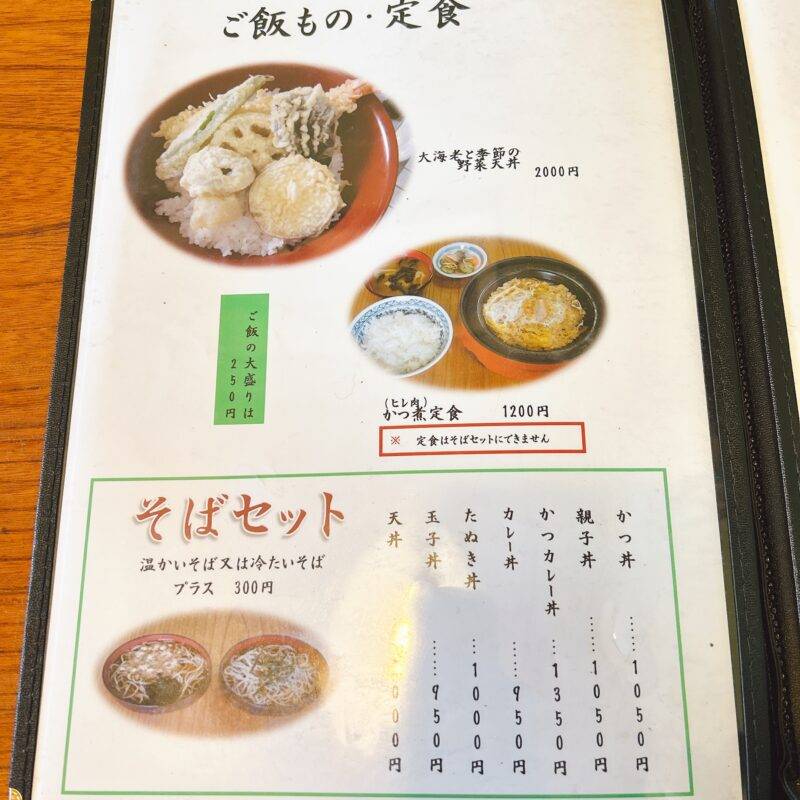 ご飯もの・定食
大海老と季節の
野菜天丼 2000円
ご飯の大盛りは
250円
(ヒレ肉)
かつ煮定食 1200円
※ 定食はそばセットにできません
そばセット
温かいそば又は冷たいそば
プラス 300円
かつ丼 ……1050円
親子丼 ……1050円
かつカレー丼 …1350円
カレー丼 ……950円
たぬき丼 …1000円
玉子丼 ……950円
天丼 000円